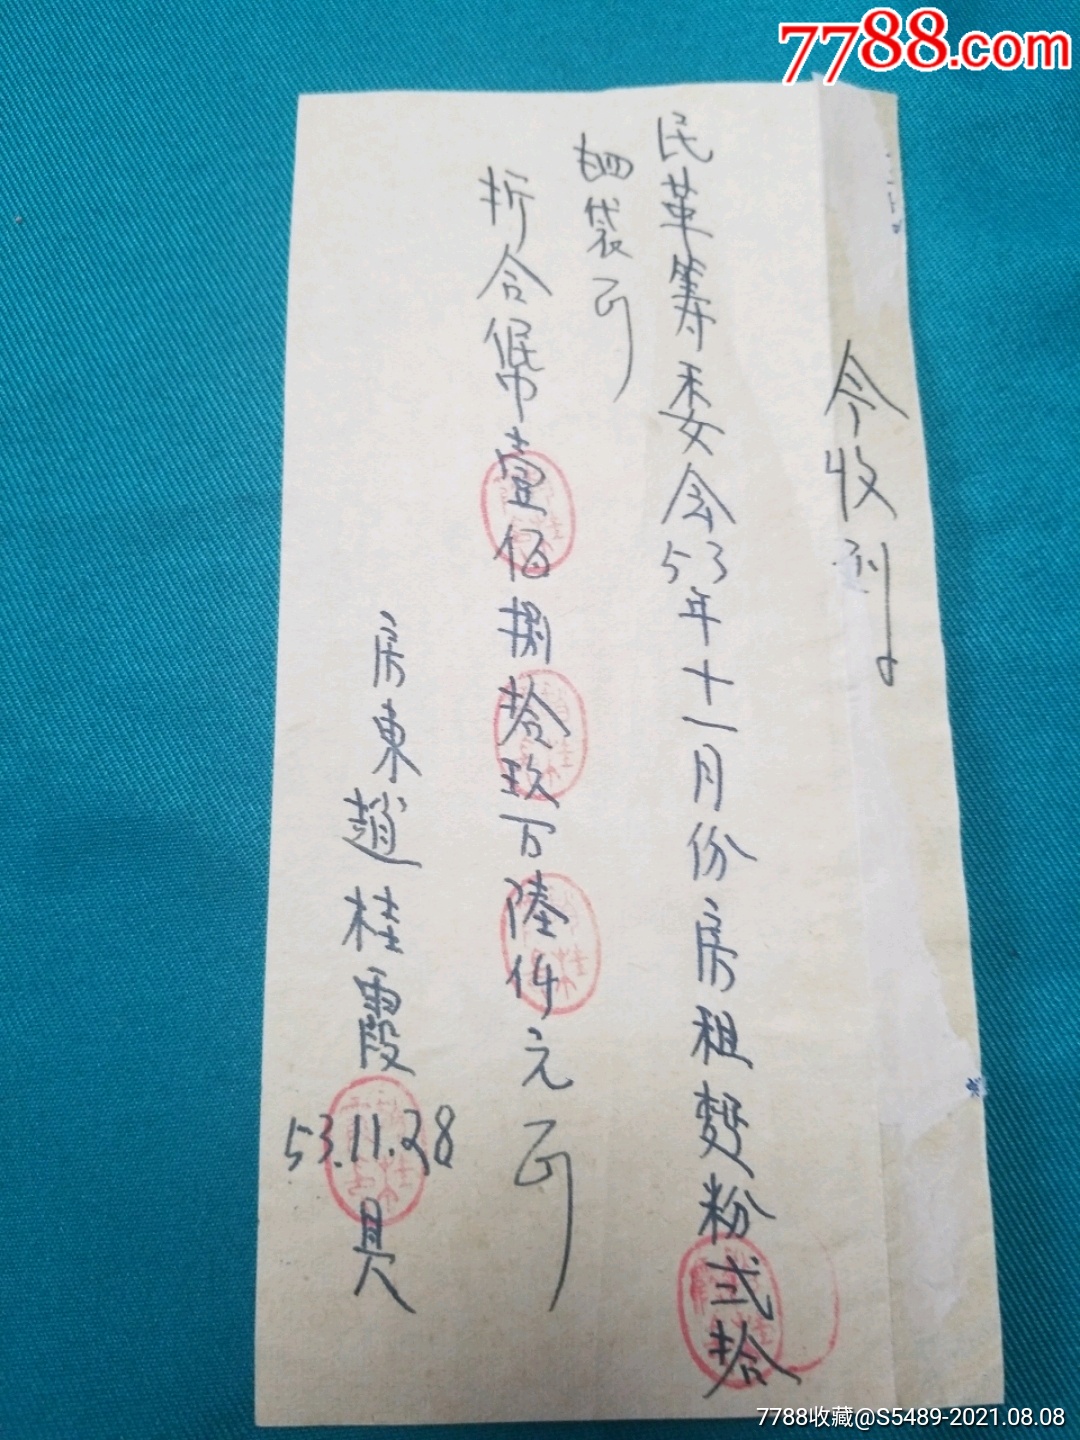 7788.com
今收到
民革筹委会53年十一月份房租麵粉弍拾
袋正
折合人民币壹佰捌拾玖万陸仟元正
房東趙桂霞
53.11.28
具
7788收藏@S5489-2021.08.08